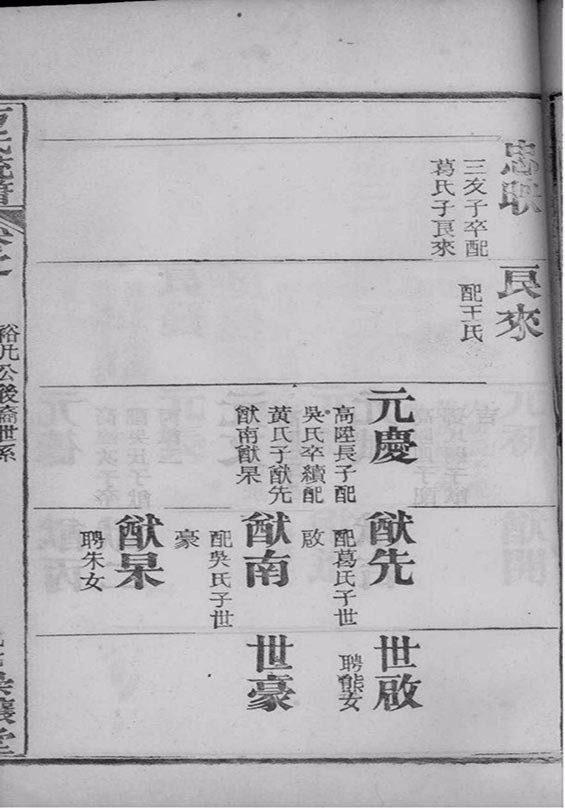 忠映
三友子卒配
葛氏子良來
良來
配王氏
元慶
高陞長子配
吳氏卒續配
黃氏子猷先
猷南猷杲
猷先
配葛氏子世
啟
猷南
配吳氏子世
豪
猷杲
聘朱女
世啟
聘熊女
世豪
氏統譜
卷之
公後裔世系
堂